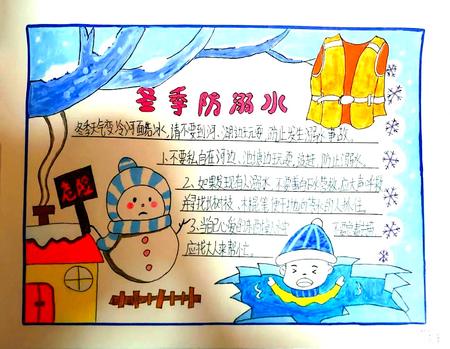 冬季防溺水
冬季天气变冷河面酷冰,请不要到河、湖边玩耍,防止发生溺水事故。
1、不要私自在河边、池塘边玩耍、游泳,防止溺水。
2、如果发现有人溺水,不要下水营救,应大声呼救
并寻找树枝、木棍等
3、当自己心爱的东西掉
应找大人来帮忙。
危险